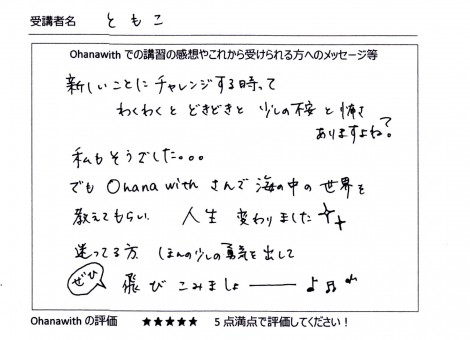 受講者名 ともこ
Ohanawith での講習の感想やこれから受けられる方へのメッセージ等
新しいことにチャレンジする時って
わくわくと どきどきと 少しの不安と怖さ
ありますよね?
私もそうでした。。。
でも Ohana with さんで 海の中の世界を
教えてもらい 人生 変わりました
迷ってる方 ほんの少しの勇気を出して
ぜひ 飛びこみましょ――♪♬
Ohanawith の評価 ★★★★★ 5 点満点で評価してください!